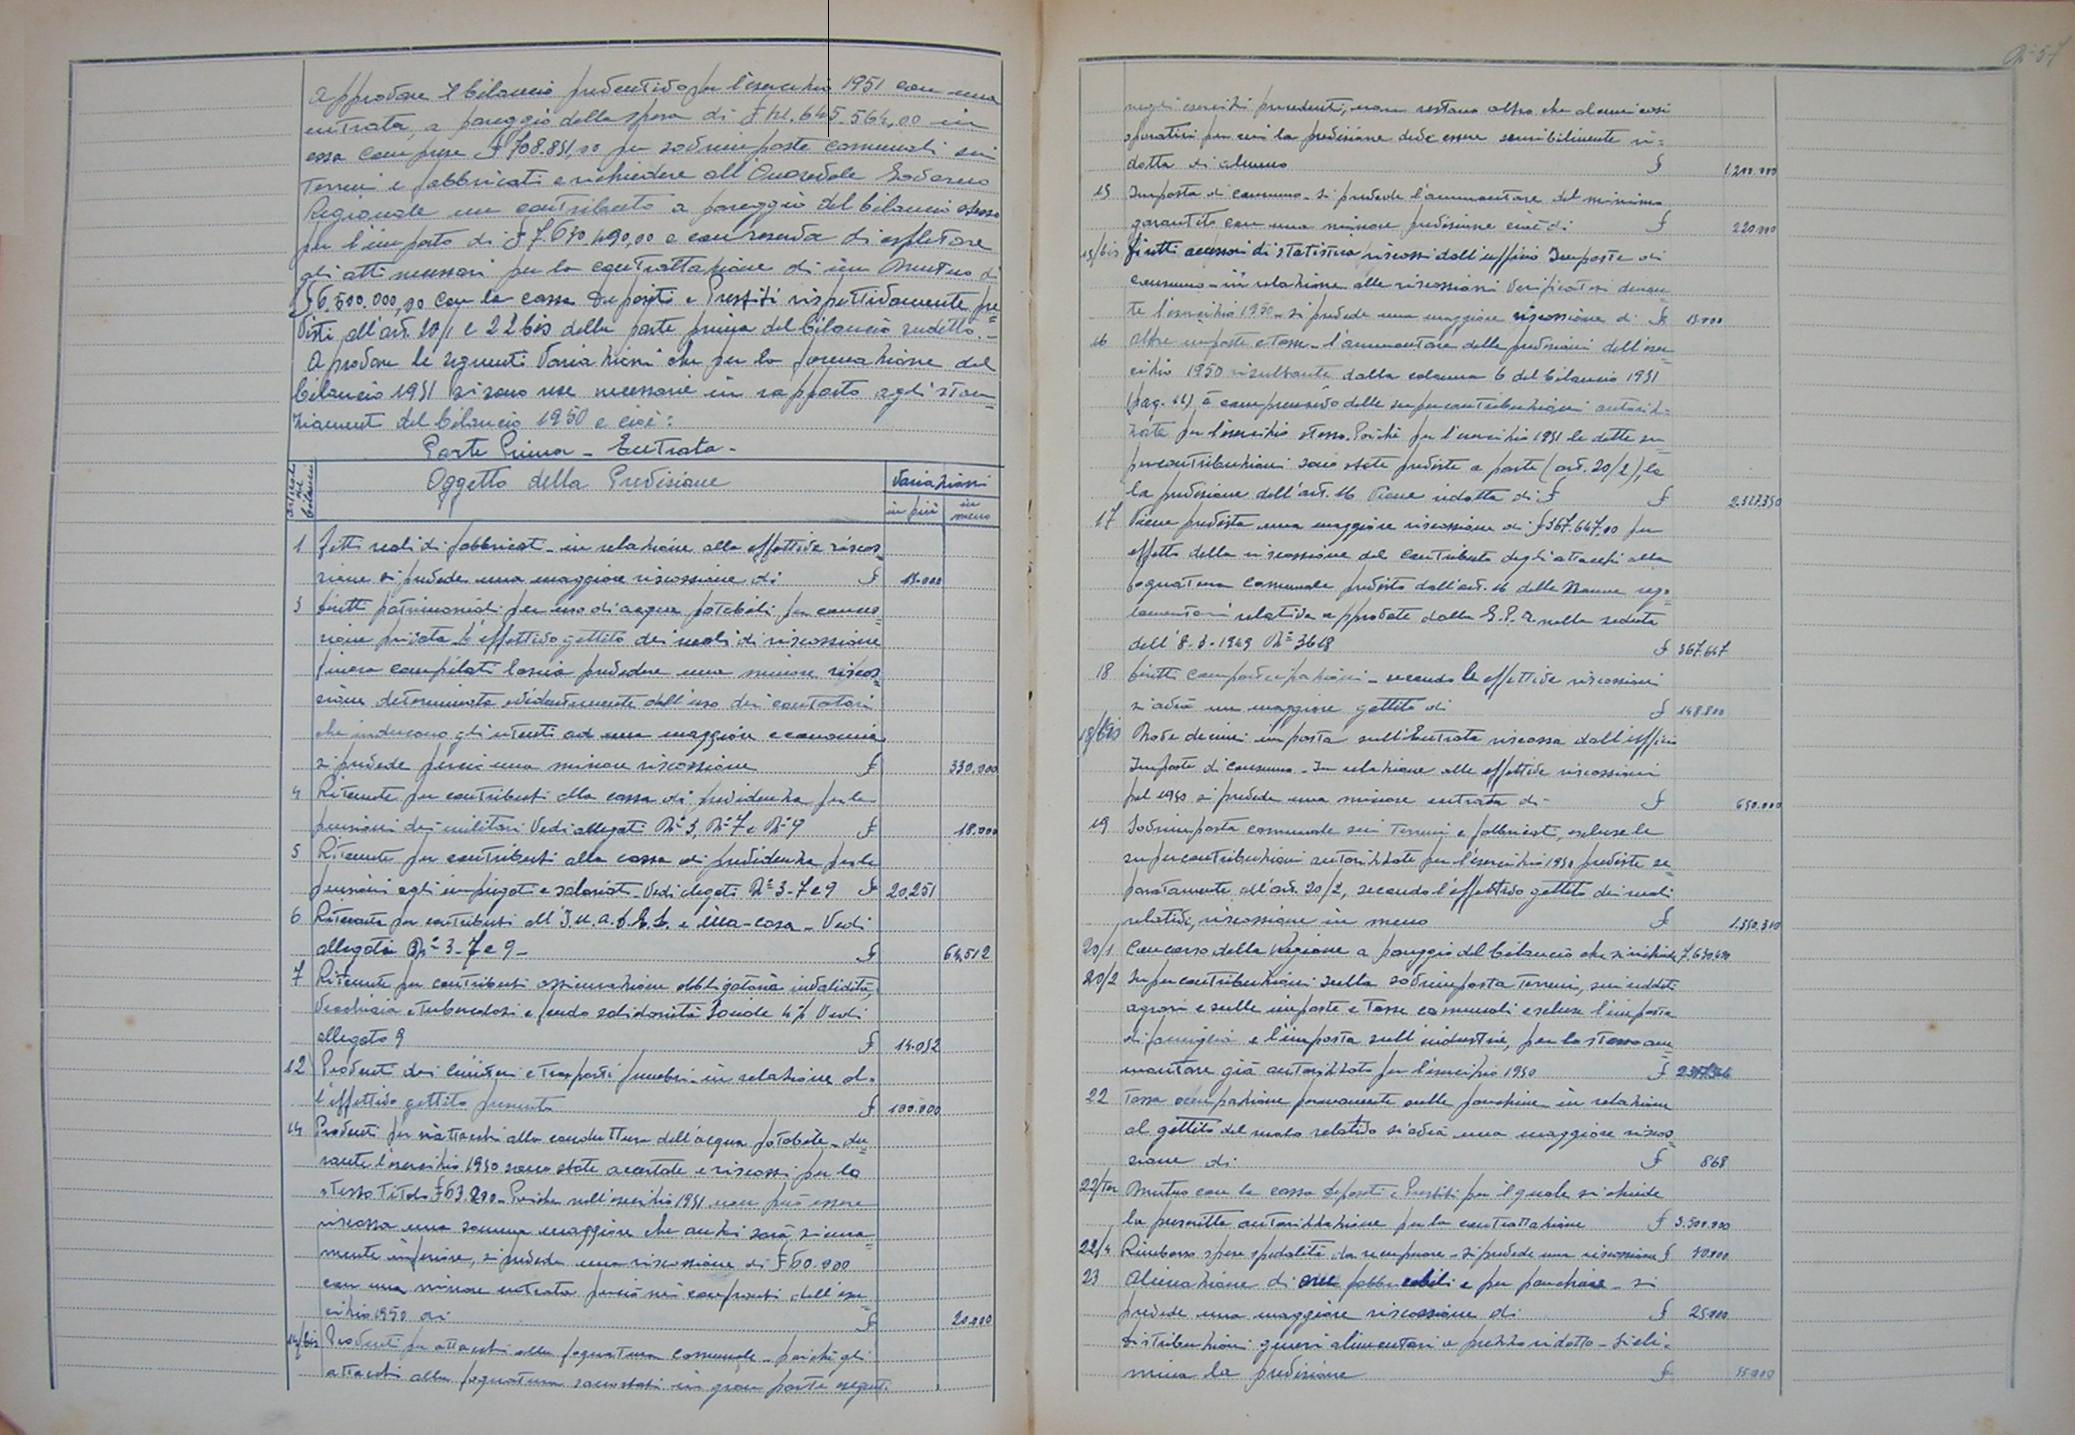 approvare il bilancio preventivo per l'esercizio 1951 con una
entrata, a pareggio della spesa di £ 645.564,00 in
essa comprese £ 708.851,00 per sovrimposte comunali sui
terreni e fabbricati e richiedere all'Onorevole Governo
Regionale un contributo a pareggio del bilancio stesso
per l'importo di £ 7.630.490,00 e con riserva di espletare
gli atti necessari per la contrattazione di un mutuo di
£ 6.500.000,00 con la cassa Depositi e Prestiti rispettivamente pre=
visti all'art. 20/1 e 22 bis della parte prima del bilancio sudetto.=
Approvare le seguenti variazioni che per la formazione del
bilancio 1951 si sono rese necessarie in rapporto agli stan=
ziamenti del bilancio 1950 e cioè:
Parte Prima - Entrata -
Articolo del bilancio
Oggetto della Previsione
Variazioni
in più
in meno
1 Fitti reali di fabbricati - in relazione alla effettiva riscos=
sione si prevede una maggiore riscossione di £ 15.000
3 Diritti patrimoniali per uso di acqua potabili per conces=
sione privata. L'effettivo gettito dei ruoli di riscossione
finora compilati lascia prevedere una minore riscos=
sione determinata evidentemente dall'uso dei contatori
che inducono gli utenti ad una maggiore economia
si prevede perciò una minore riscossione £ 330.000
4 Ritenute per contributi alla cassa di previdenza per le
pensioni dei militari Vedi allegati N° 3, N° 7 e N° 9 £ 18.000
5 Ritenute per contributi alla cassa di previdenza per le
pensioni agli impiegati e salariati - Vedi allegati N° 3-7 e 9 £ 20.251
6 Ritenute per contributi all'I.N.A.D.E.L. e Ina-Casa - Vedi
allegati N° 3-7 e 9 - £ 64.512
7 Ritenute per contributi assicurazione obbligatoria invalidità,
vecchiaia e tubercolosi e fondo solidarietà sociale 4% Vedi
allegato 9 £ 14.052
12 Proventi dei cimiteri e trasporti funebri - in relazione al=
l'effettivo gettito presunto £ 100.000
14 Proventi per riattacchi alla conduttura dell'acqua potabile - du=
rante l'esercizio 1950 sono state accertate e riscossi per lo
stesso titolo £ 63.200 - Poiché nell'esercizio 1951 non può essere
riscossa una somma maggiore che anzi sarà sicura=
mente inferiore, si prevede una riscossione di £ 60.000
con una minore entrata perciò nei confronti dell'eser=
cizio 1950 di £ 20.000
14/bis Proventi per attacchi alla fognatura comunale - poiché gli
attacchi alla fognatura sono stati in gran parte eseguiti
N° 57
negli esercizi precedenti, non restano altro che alcuni casi
sporatici per cui la previsione deve essere sensibilmente ri=
dotta di almeno £ 1.200.000
15 Imposta di consumo - si prevede l'ammontare del minimo
garantito con una minore previsione cioè di £ 220.000
15/bis Diritti accessori di statistica riscossi dall'ufficio Imposte di
consumo - in relazione alle riscossioni verificatesi duran=
te l'esercizio 1950 - si prevede una maggiore riscossione di £ 15.000
16 Altre imposte e tasse - l'ammontare delle previsioni dell'eser=
cizio 1950 risultante dalla colonna 6 del bilancio 1951
(pag. 14) è comprensivo delle supercontribuzioni autoriz=
zate per l'esercizio stesso. Poiché per l'esercizio 1951 le dette su=
percontribuzioni sono state previste a parte (art. 20/2), la
la previsione dell'art. 16 viene ridotta di £ £ 2.327.350
17 Viene prevista una maggiore riscossione di £ 367.647,00 per
effetto della riscossione del contributo degli attacchi alla
fognatura comunale previsto dall'art. 16 delle norme rego=
lamentari relative approvate dalla G.P.A. nella seduta
dell'8-3-1949 N° 3618 £ 367.647
18 Diritti compartecipazioni - secondo le effettive riscossioni
si avrà un maggiore gettito di £ 148.800
18/bis Nove decimi imposta sull'Entrata riscossa dall'ufficio
Imposte di consumo - In relazione alle effettive riscossioni
pel 1950 si prevede una minore entrata di - £ 650.000
19 Sovrimposta comunale sui terreni e fabbricati, escluse le
supercontribuzioni autorizzate per l'esercizio 1950 previste se=
paratamente all'art. 20/2, secondo l'effettivo gettito dei ruoli
relativi, riscossione in meno £ 1.550.310
20/1 Concorso della Regione a pareggio del bilancio che si richiede 7.630.490
20/2 Supercontribuzioni sulla sovrimposta terreni, sui redditi
agrari e sulle imposte e tasse comunali escluse l'imposta
di famiglia e l'imposta sull'industrie, per lo stesso am=
montare già autorizzato per l'esercizio 1950 £
22 Tassa occupazione permanente sulle panchine - in relazione
al gettito del ruolo relativo si avrà una maggiore riscos=
sione di £ 868
22/ter Mutuo con la cassa Depositi e Prestiti per il quale si chiede
la prescritta autorizzazione per la contrattazione £ 3.500.000
22/4 Rimborso spese spedalità da recuperare - si prevede una riscossione £ 50.000
23 Alienazione di aree fabbricabili e per panchine - si
prevede una maggiore riscossione di £ 25.000
Distribuzioni generi alimentari a prezzo ridotto - si eli=
mina la previsione £ 55.000